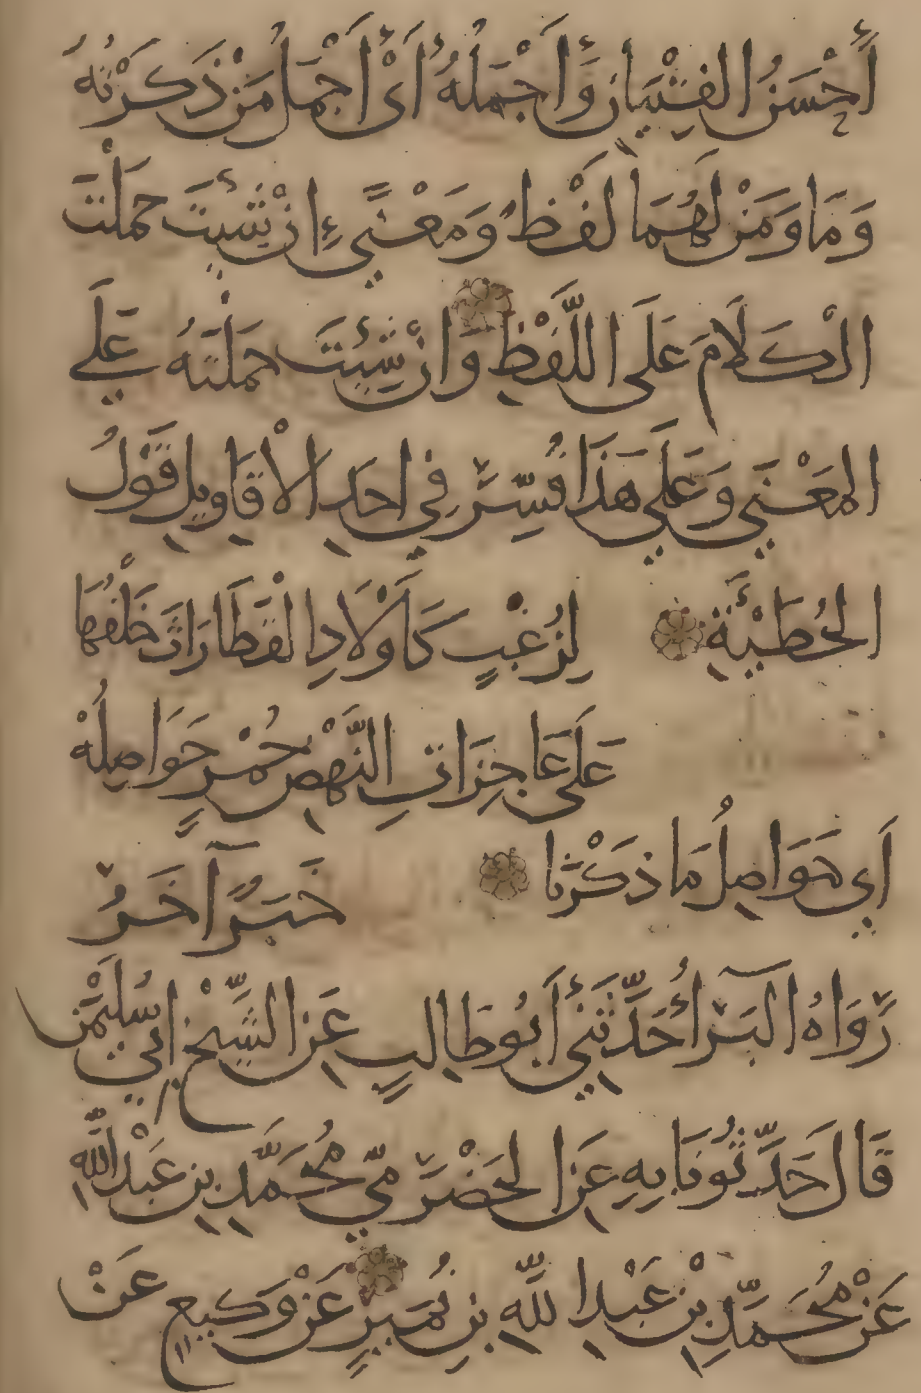 أَحْسَنُ الفِتْيَانِ وَأَجْمَلُهُ أَيْ أَجْمَلُ مَنْ ذَكَرْتُهُ
وَمَا وَمَنْ لَهُمَا لَفْظٌ وَمَعْنًى إِنْ شِئْتَ حَمَلْتَ
الْكَلَامَ عَلَى اللَّفْظِ وَإِنْ شِئْتَ حَمَلْتَهُ عَلَى
المَعْنَى وَعَلَى هَذَا فُسِّرَ فِي أَحَدِ الْأَقَاوِيلِ قَوْلُ
الحُطَيْئَةِ لِزُغْبٍ كَأَوْلَادِ القَطَا رَاثَ خَلْفُهَا
عَلَى عَاجِزَاتِ النَّهْضِ حُمْرٍ حَوَاصِلُهْ
أَي حَوَاصِلُ مَا ذَكَرْنَا خَبَرٌ آخَرُ
رَوَاهُ البَرَآءُ حَدَّثَنِي أَبُو طَالِبٍ عَنِ الشَّيْخِ أَبِي سُلَيْمٰنَ
قَالَ حَدَّثُونَا بِهِ عَنِ الحَضْرَمِيِّ مُحَمَّدِ بنِ عَبْدِ اللَّهِ
عَنْ مُحَمَّدِ بْنِ عَبْدِ اللَّهِ بنِ نُمَيرٍ عَنْ وَكِيعٍ عَنْ